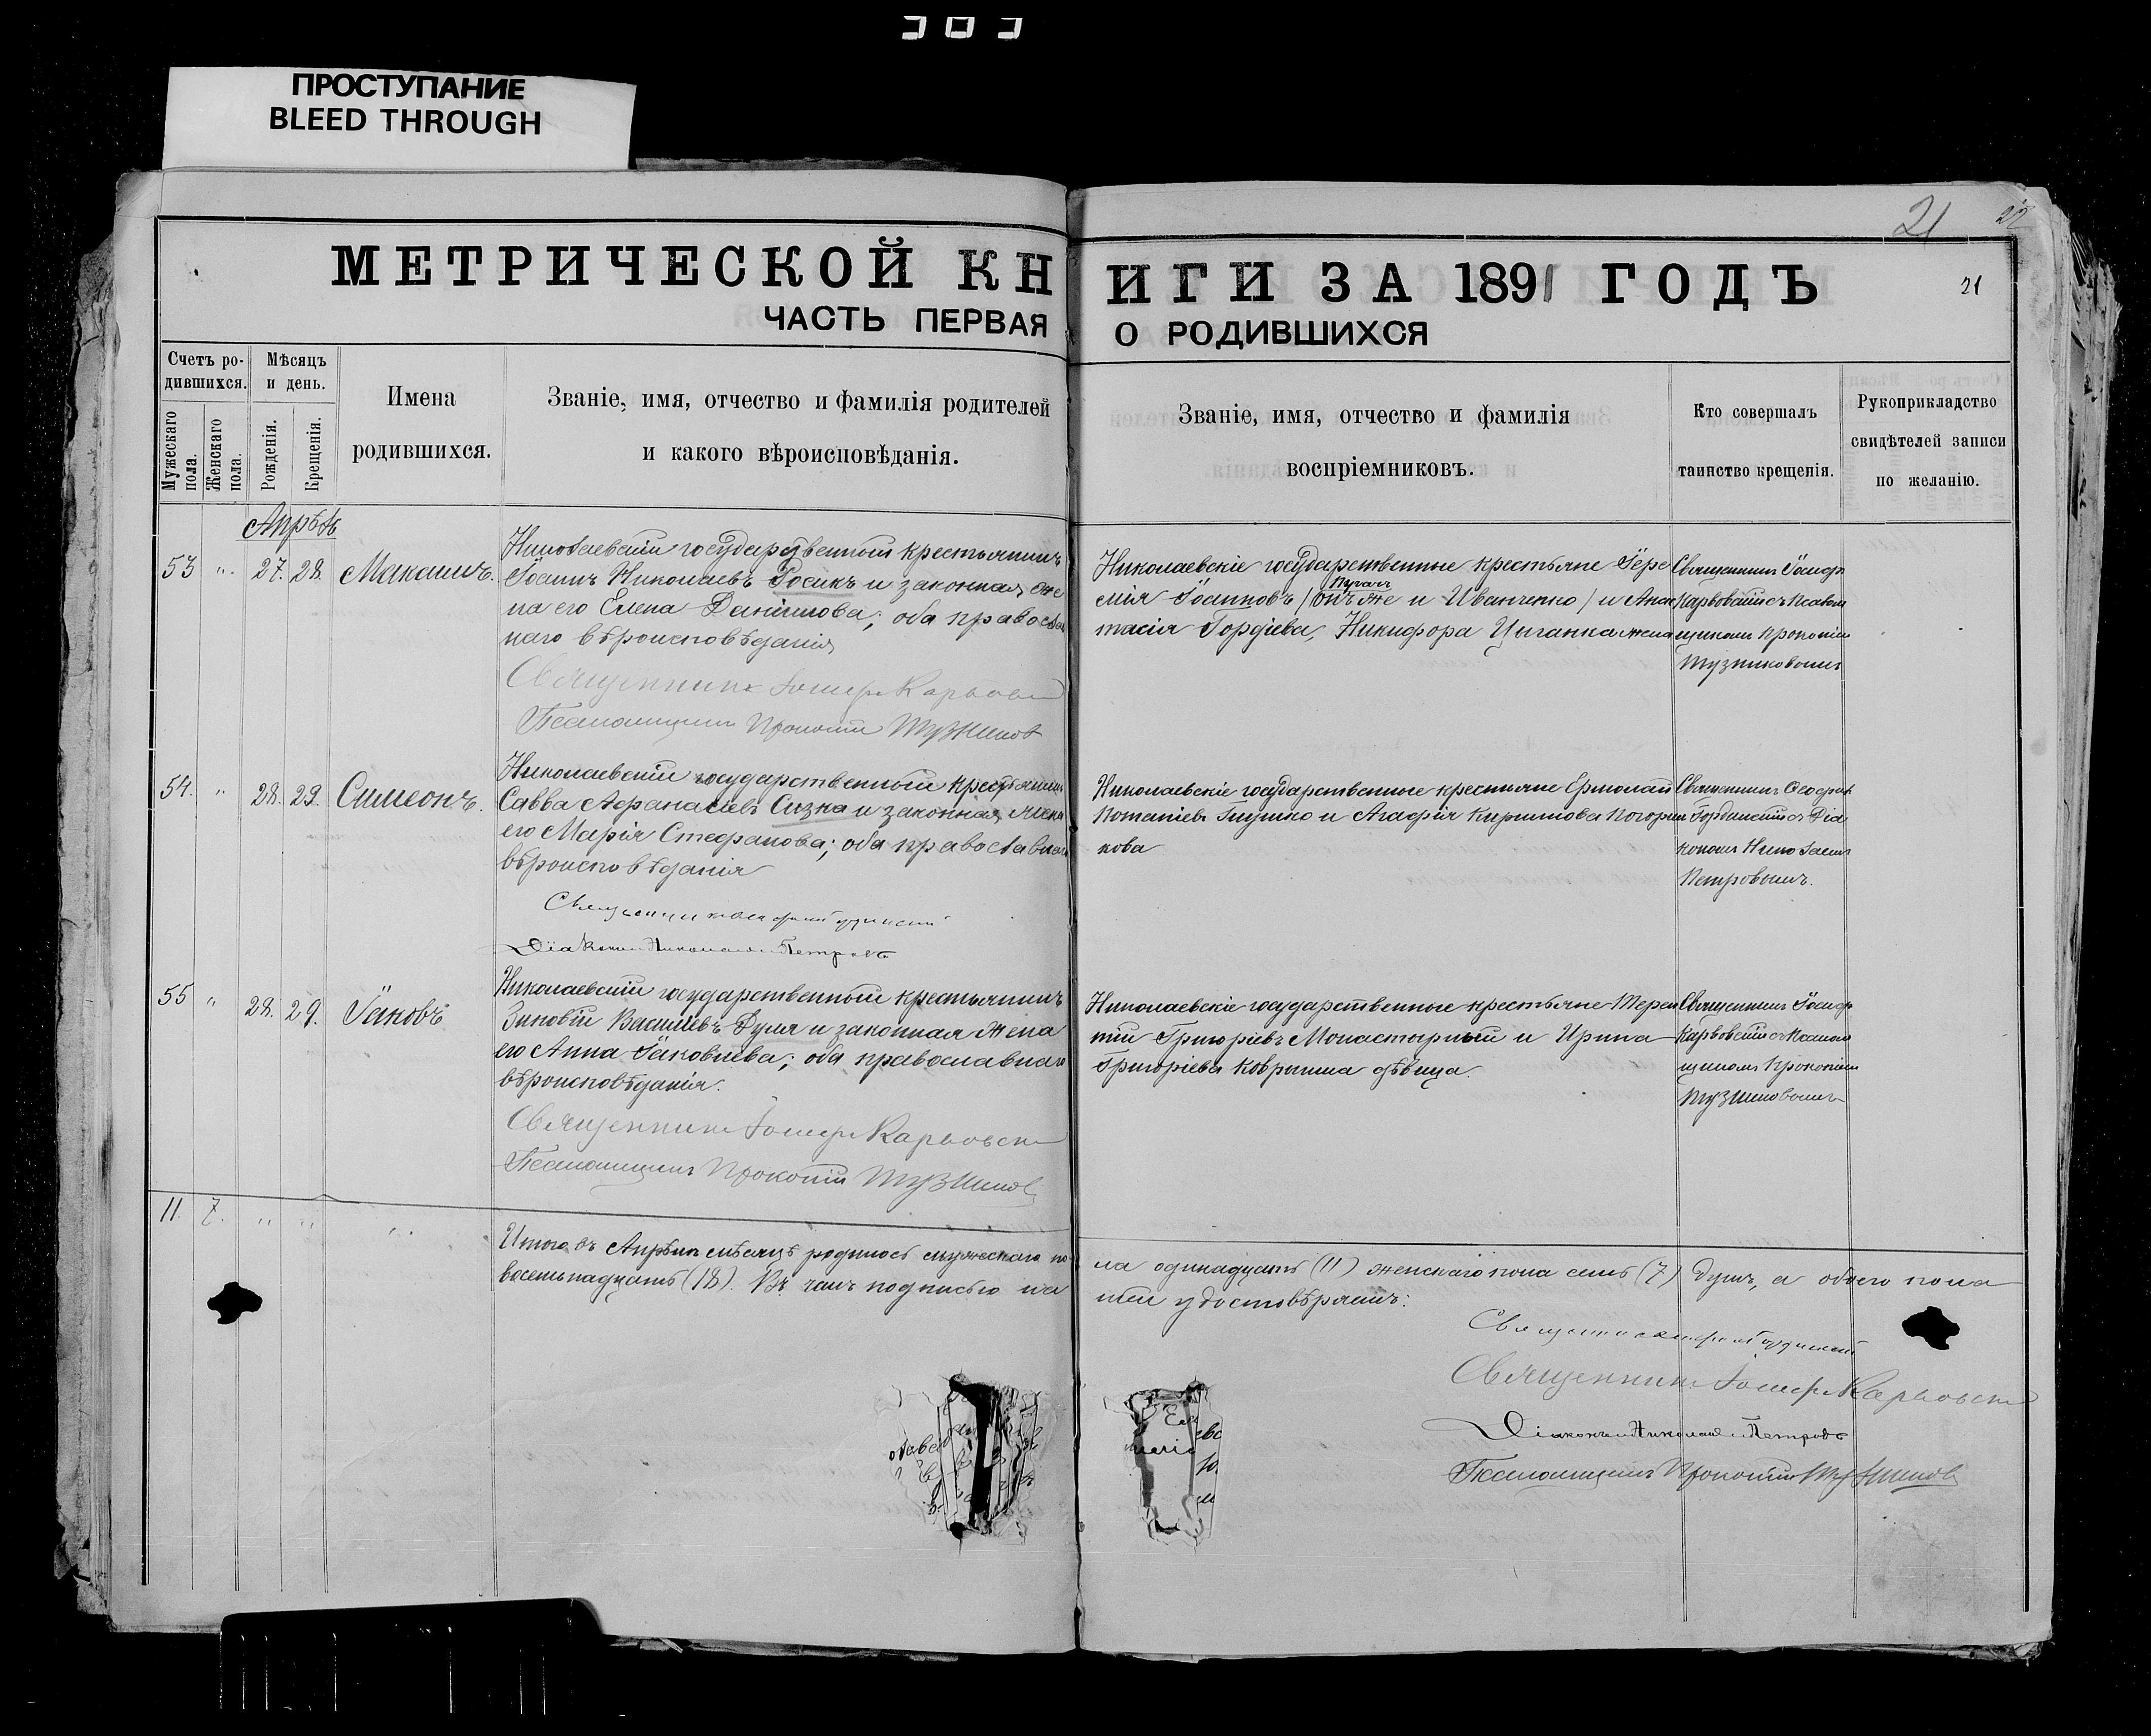 ПРОСТУПАНИЕ
BLEED THROUGH
21
22
МЕТРИЧЕСКОЙ КНИГИ ЗА 1891 ГОДЪ
21
ЧАСТЬ ПЕРВАЯ О РОДИВШИХСЯ
Счетъ родившихся.
Мужескаго пола.
Женскаго пола.
Мѣсяцъ и день.
Рожденія.
Крещенія.
Имена
родившихся.
Званіе, имя, отчество и фамилія родителей
и какого вѣроисповѣданія.
Званіе, имя, отчество и фамилія
воспріемниковъ.
Кто совершалъ
таинство крещенія.
Рукоприкладство
свидѣтелей записи
по желанію.
Апрѣль
53 " 27. 28.
Николаевскій государственный крестьянинъ
Іоаннъ Николаевъ Носикъ и законная же
на его Елена Даніилова; оба православ
наго вѣроисповѣданія
Священникъ Іосифъ Карвовскій
Псаломщикъ Прокопій
Николаевскіе государственные крестьяне Іере
мія Іоанновъ (онъ же и Иванченко) и Анас
тасія Гордіева, Никифора Цыганка жена
Священникъ Іосифъ
Карвовскій съ Псалом
щикомъ Прокопіемъ
54. " 28. 29. Симеонъ.
Николаевскій государственный крестьянинъ
Савва Афанасіевъ Сизко и законная жена
его Марія Стефанова; оба православнаго
вѣроисповѣданія
Діаконъ Николай Петровъ
Николаевскіе государственные крестьяне Ермолай
Потапіевъ и Агафія Кириллова
кова
Священникъ
съ Діа
кономъ Николаемъ
Петровымъ.
55 " 28. 29. Іаковъ
Николаевскій государственный крестьянинъ
Зиновій Василіевъ Дуля и законная жена
его Анна Іаковлева; оба православнаго
вѣроисповѣданія.
Священникъ Іосифъ Карвовскій
Псаломщикъ Прокопій
Николаевскіе государственные крестьяне Терен
тій Григоріевъ Монастырный и Ирина
Григоріева дѣвица.
Священникъ Іосифъ
Карвовскій съ Псалом
щикомъ Прокопіемъ
11. 7. " "
Итого въ Апрѣлѣ мѣсяцѣ родилось мужескаго по
ла одинадцать (11) женскаго пола семь (7) душъ, а обоего пола
восемьнадцать (18). Въ чемъ подписью на
шею удостовѣряемъ:
Священникъ Іосифъ Карвовскій
Діаконъ Николай Петровъ
Псаломщикъ Прокопій